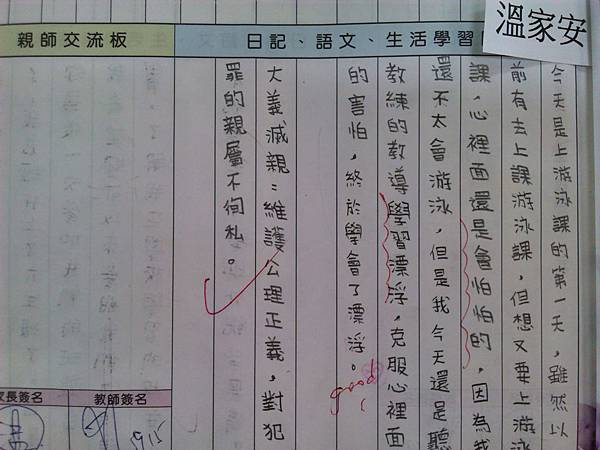 溫家安
日記、語文、生活學習
親師交流板
今天是上游泳課的第一天，雖然以
前有去上課游泳課，但想又要上游泳
課，心裡面還是會怕怕的，因為我
還不太會游泳，但是我今天還是聽
教練的教導學習漂浮，克服心裡面
的害怕，終於學會了漂浮。
good
大義滅親：維護公理正義，對犯
罪的親屬不徇札。
家長簽名
教師簽名